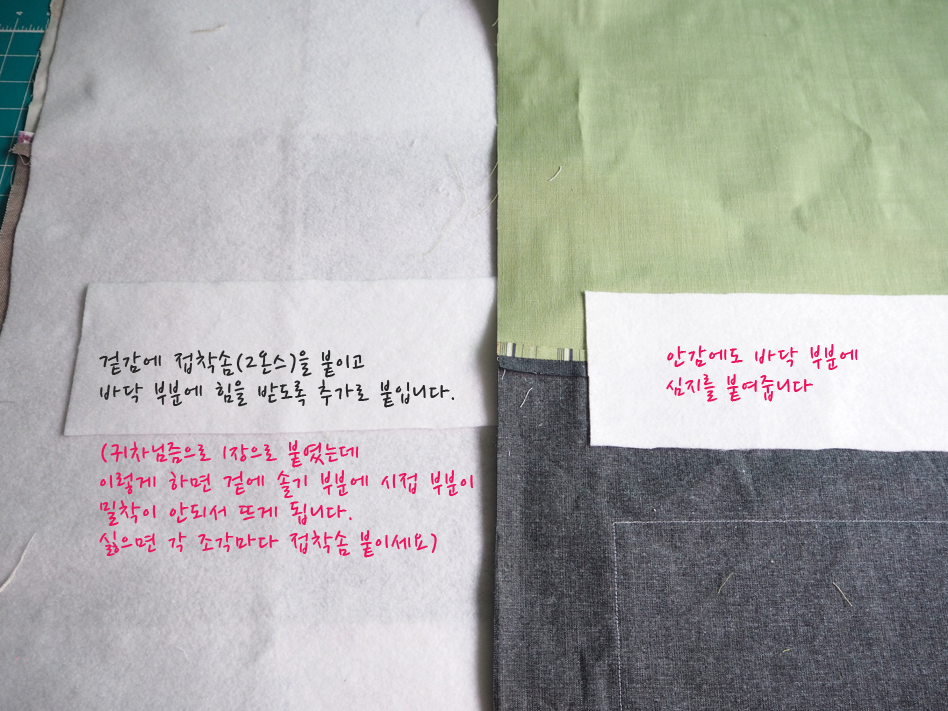 겉감에 접착솜(2온스)을 붙이고
바닥 부분에 힘을 받도록 추가로 붙입니다.
(귀차님즘으로 1장으로 붙였는데
이렇게 하면 겉에 솔기 부분에 시접 부분이
밀착이 안되서 뜨게 됩니다.
싫으면 각 조각마다 접착솜 붙이세요)
안감에도 바닥 부분에
심지를 붙여줍니다